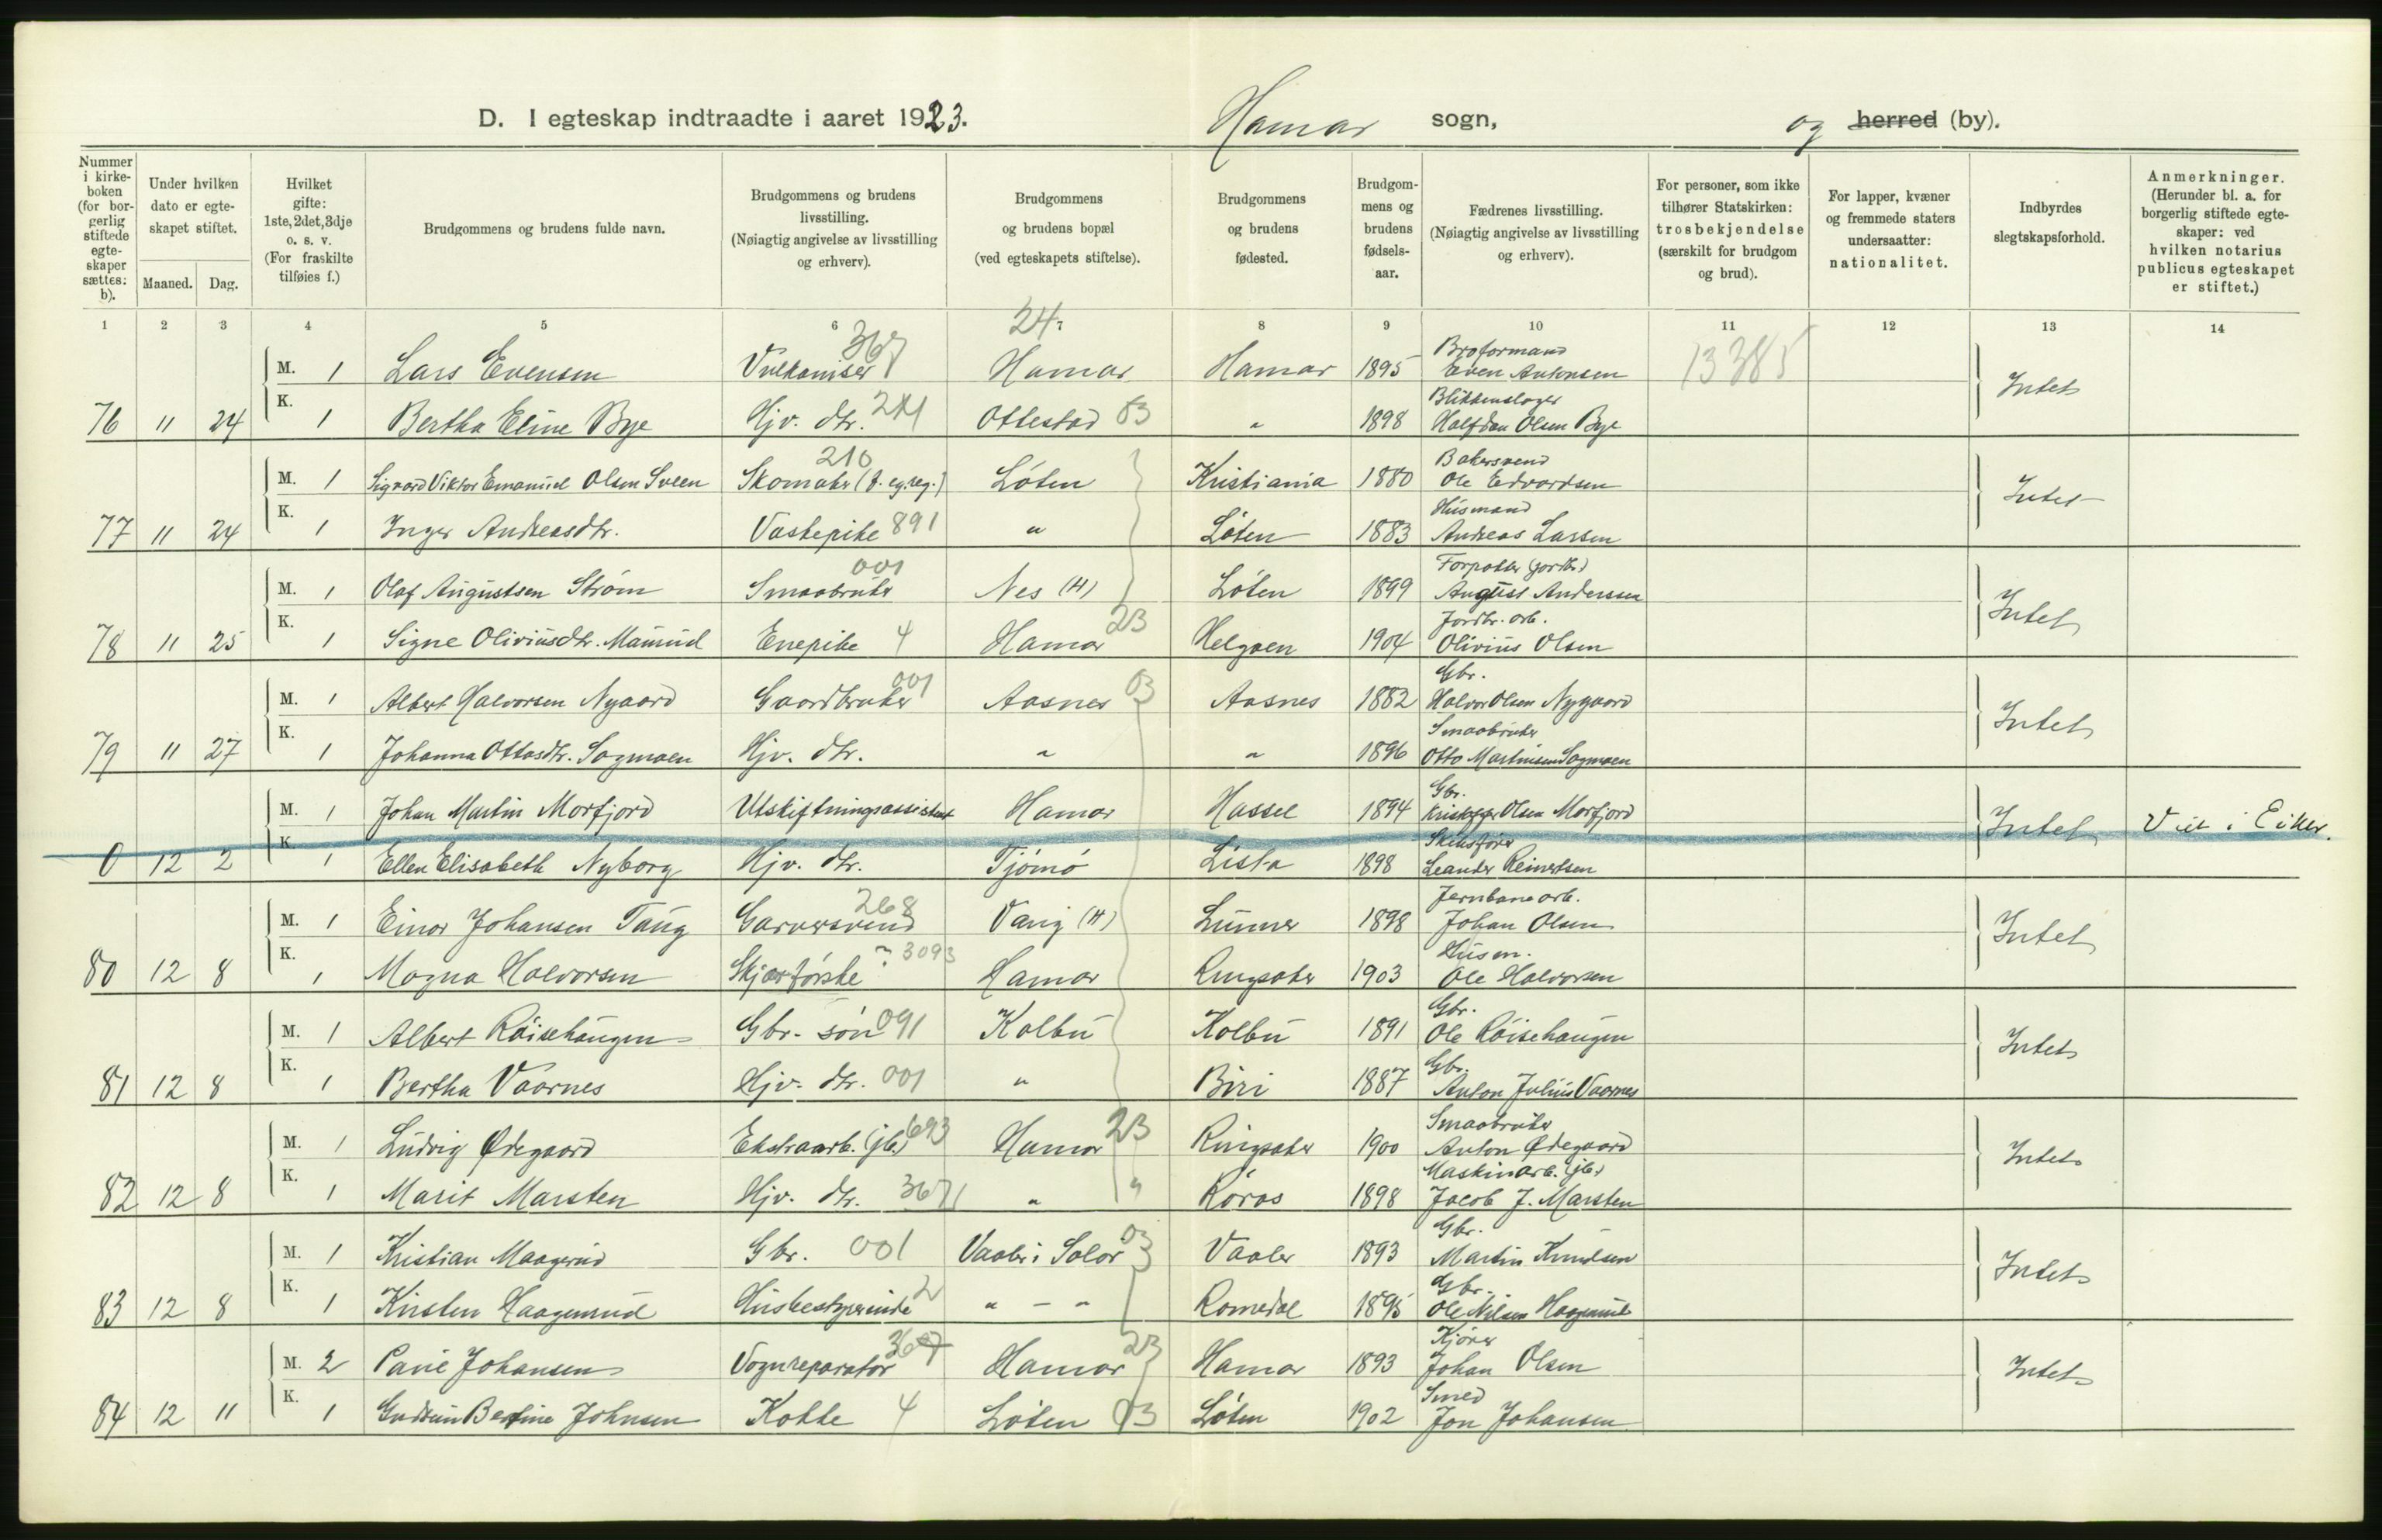 D. I egteskap indtraadte i aaret 1923. Hamar sogn, og herred (by).
Nummer i kirkeboken (for borgerlig stiftede egteskaper sættes: b).
Under hvilken dato er egteskapet stiftet.
Maaned. Dag.
Hvilket gifte: 1ste, 2det, 3dje o. s. v. (For fraskilte tilføies f.)
Brudgommens og brudens fulde navn.
Brudgommens og brudens livsstilling. (Nøiagtig angivelse av livsstilling og erhverv).
Brudgommens og brudens bopæl (ved egteskapets stiftelse).
Brudgommens og brudens fødested.
Brudgommens og brudens fødselsaar.
Fædrenes livsstilling. (Nøiagtig angivelse av livsstilling og erhverv).
For personer, som ikke tilhører Statskirken: trosbekjendelse (særskilt for brudgom og brud).
For lapper, kvæner og fremmede staters undersaatter: nationalitet.
Indbyrdes slegtskapsforhold.
Anmerkninger. (Herunder bl. a. for borgerlig stiftede egteskaper: ved hvilken notarius publicus egteskapet er stiftet.)
1 2 3 4 5 6 7 8 9 10 11 12 13 14
24
367 Broformand
M. 1 Lars Evensen Vulkaniser Hamar Hamar 1895 Even Antonsen 13385 Intet
Blikkenslager
76 11 24 K. 1 Bertha Eline Bye Hjv. dtr. Ottestad 03 " 1898 Halfdan Olsen Bye
210 Bakersvend
M. 1 Sigvard Viktor Emanuel Olsen Sveen Skomaker (f. eg. reg.) Løten Kristiania 1880 Ole Edvardsen Intet
Husmand
77 11 24 K. 1 Inger Andreasdtr. Vaskepike 891 " Løten 1883 Andreas Larsen
001 Forpakter
M. 1 Olaf Augustsen Strøm Smaabruker Nes (H) Løten 1899 August Andersen Intet
23 Jordbr. arb.
78 11 25 K. 1 Signe Oliviusdtr. Enepike 4 Hamar Helgøen 1904 Olivius Olsen
001 Gbr.
M. 1 Albert Halvorsen Nygaard Gaardbruker Aasnes 03 Aasnes 1882 Halvor Olsen Nygaard Intet
Smaabruker
79 11 27 K. 1 Johanna Ottosdtr. Sagmoen Hjv. dtr. " " 1896 Otto Martinsen Sagmoen
Gbr.
M. 1 Johan Martin Morfjord Utskiftningsassistent Hamar Hassel 1894 Olsen Morfjord Intet Viet i Eiker.
0 12 2 K. 1 Ellen Elisabeth Nyborg Hjv. dtr. Tjømø Lista 1898 Leander Reinertsen
268 Jernbanearb.
M. 1 Einar Johansen Taug Garversvend Vang (H) Lunner 1898 Johan Olsen Intet
3093 Husm.
80 12 8 K. 1 Magna Halvorsen Hamar Ringsaker 1903 Ole Halvorsen
Gbr.
M. 1 Albert Røisehaugen Gbr. søn 091 Kolbu Kolbu 1891 Ole Røisehaugen Intet
Gbr.
81 12 8 K. 1 Bertha Vaarnes Hjv. dtr. 001 " Biri 1887 Anton Julius Vaarnes
693 Smaabruker
M. 1 Ludvig Ødegaard Ekstraarb. (jb.) Hamar 23 Ringsaker 1900 Anton Ødegaard Intet
Maskinarb. (jb.)
82 12 8 K. 1 Marit Marsten Hjv. dtr. 3671 " " Røros 1898 Jacob J. Marsten
Gbr.
M. 1 Kristian Maagerud Gbr. 001 Vaaler i Solør 03 Vaaler 1893 Martin Knudsen Intet
Gbr.
83 12 8 K. 1 Kirsten Haagenrud Husbestyrerinde 2 " – " Romedal 1895 Ole Nilsen Haagenrud
367 Kjører
M. 2 Johansen Vognreparatør Hamar 23 Hamar 1893 Johan Olsen Intet
Smed
84 12 11 K. 1 Gudrun Bertine Johnsen Kokke 4 Løten 03 Løten 1902 Jon Johansen